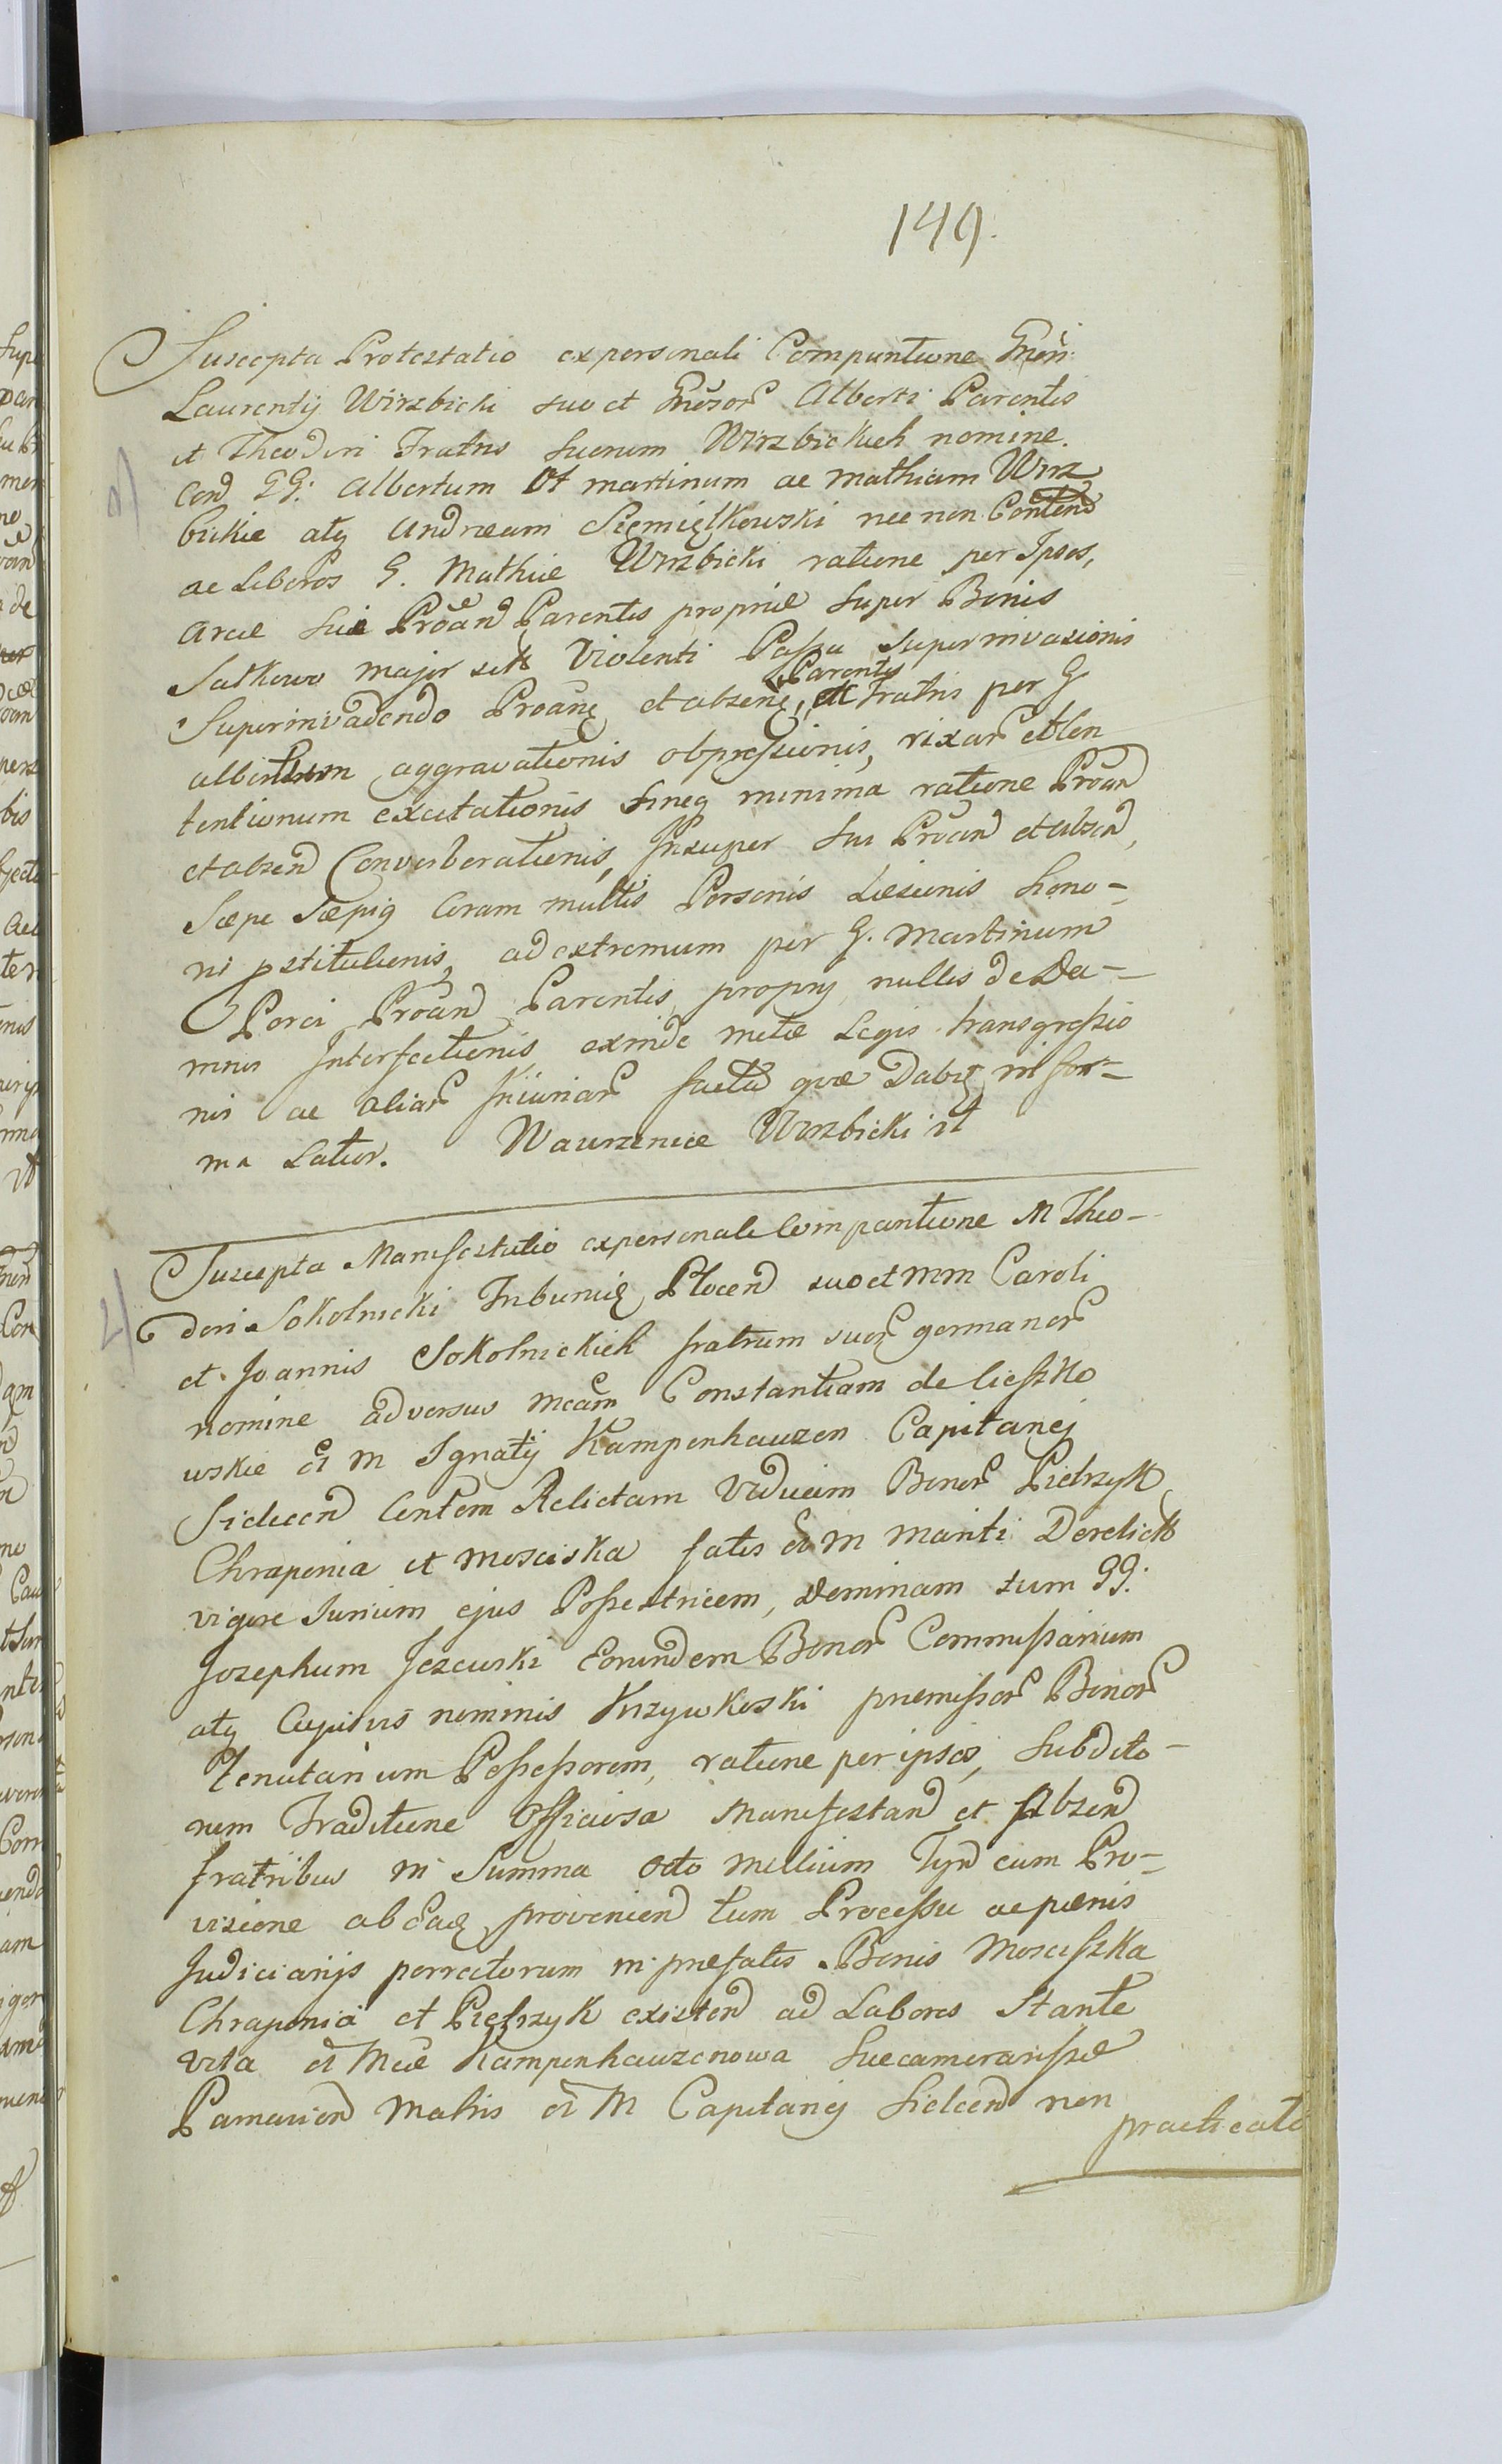 149.
Suscepta Protestatio ex personali Comparitione Gnen:
Laurentij Wirzbicki suo et Gnesor Alberti Parentis
et Theodori Fratris suorum Wirzbickich nomine.
Cond GG: Albertum et martinum ac mathiam Wirz
bickie atq Andream Siemiętkowski nec non Contend
ac Liberos G. Mathiæ Wirzbicki ratione per Ipsos,
Areæ suæ Proan Parentis propriæ super Bonis
Sutkowo major sitt Violenti Passu superinvasionis
Superinvadendo Proanę et absenę, Parentis et Fratris per G
albertum aggravationis obpressionis, rixar et
tentionum excitationis sineq minima ratione Proan
et absend Converberationis, Insuper sui Proand et absend,
Sæpe Sæpiq Coram multis Personis Læsionis hono-
ri pstitutionis, ad extremum per G. Martinum
Porci Proand Parentis proprij nullis de Da-
mnis Interfectionis exinde metæ Legis transgressio
nis ac aliar Iniuriar factæ quæ Dabit in for-
ma Latior. Wawrzeniec Wirzbicki
4)
Suscepta Manifestatio ex personali Comparitione M Theo-
dori Sokolnicki Tribunię Plocen suo et mm Caroli
et Joannis Sokolnickich fratrum suor germanor
nomine adversus mcam Constantiam de Lieszko
wskie M Ignatij Kampenhauzen Capitanej
Sielecen Relictam Viduam Bonor Pietrzyk
Chraponia et Mosciska fatis M mariti Derelict
vigore Jurium ejus Possestricem, Dominam tum GG:
Josephum Jezewski Eorundem Bonor Commissarium
atq Cujusvis nominis Krzywkoski præmissor Bonor
Tenutarium Possessorem, ratione per ipsos, subdito-
rum Traditione Officiosa Manifestand et Absend
fratribus in Summa octo millium Tynf cum Pro-
visione ab eaę provenien tum Processu ac pænis
Judiciarijs perrectorum in præfatis Bonis Mosciszka
Chraponia et Pietrzyk existen ad Labores Stante
vita Mcæ Kampenhauzenowa Succamerariszæ
Pamavien Matris M Capitanej Sielcen non
practicato